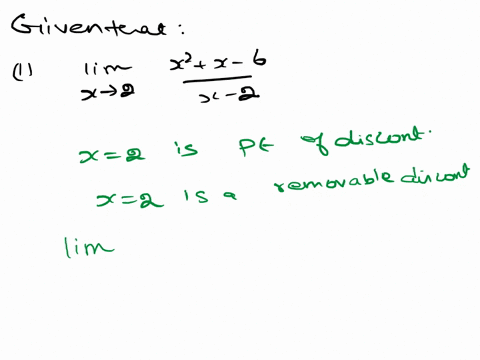 Given that:
(1) lim x→2 x²+x-6 / x-2
x=2 is pt of discont.
x=2 is a removable discont
lim